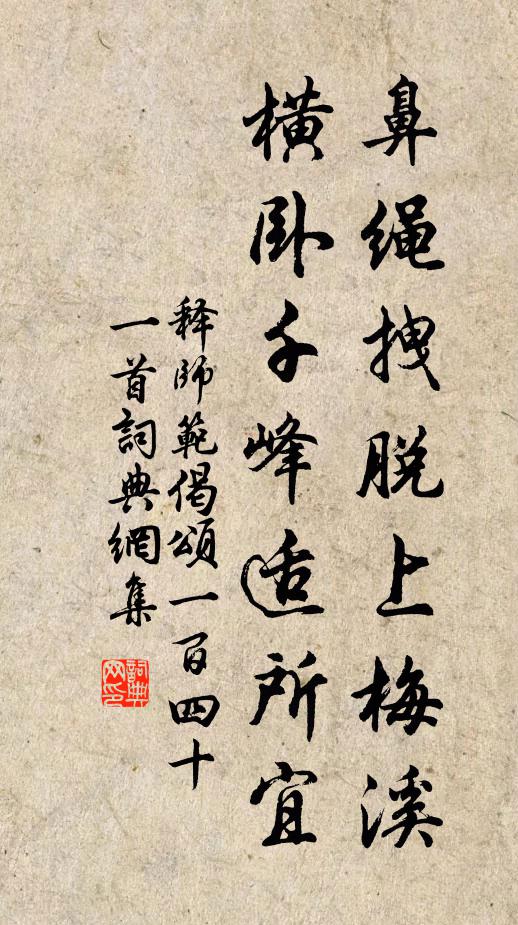 鼻繩拽脱上梅溪
橫卧千峰适所宜
释師範偈頌一百四十
一首詞典網集
詞典网印